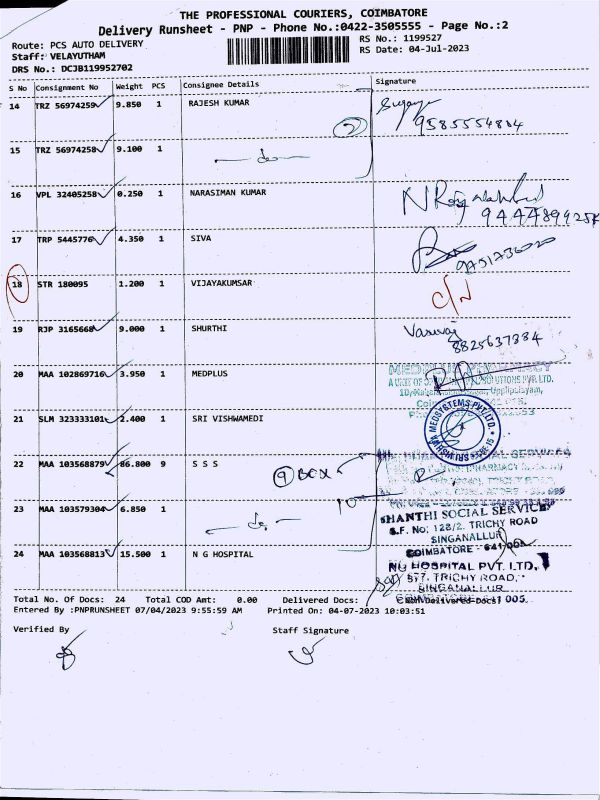 THE PROFESSIONAL COURIERS, COIMBATORE
Delivery Runsheet - PNP - Phone No.:0422-3505555 - Page No.:2
Route: PCS AUTO DELIVERY
RS No.: 1199527
Staff: VELAYUTHAM
RS Date: 04-Jul-2023
DRS No.: DCJB119952702
S No Consignment No Weight PCS Consignee Details Signature
14 TRZ 56974259 9.850 1 RAJESH KUMAR
2
9585554884
15 TRZ 56974258 9.100 1 do
16 VPL 32405258 0.250 1 NARASIMAN KUMAR
17 TRP 5445776 4.350 1 SIVA
18 STR 180095 1.200 1 VIJAYAKUMSAR
C/N
19 RJP 3165668 9.000 1 SHURTHI
8825637884
20 MAA 102869716 3.950 1 MEDPLUS
21 SLM 323333101 2.400 1 SRI VISHWAMEDI
22 MAA 103568879 86.800 9 S S S
9 BOX
23 MAA 103579304 6.850 1 do
SHANTHI SOCIAL SERVICE
S.F. No: 128/2, TRICHY ROAD
SINGANALLUR
COIMBATORE - 641 005
24 MAA 103568813 15.500 1 N G HOSPITAL
NG HOSPITAL PVT. LTD.
577, TRICHY ROAD,
SINGANALLUR
Total No. Of Docs: 24 Total COD Amt: 0.00 Delivered Docs: Non Delivered Docs:
Entered By :PNPRUNSHEET 07/04/2023 9:55:59 AM Printed On: 04-07-2023 10:03:51
Verified By Staff Signature